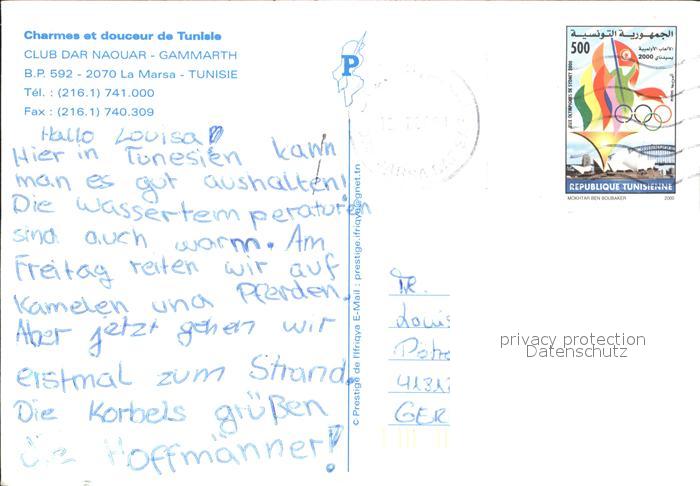 Charmes et douceur de Tunisie
CLUB DAR NAOUAR - GAMMARTH
B.P. 592 - 2070 La Marsa - TUNISIE
Tél. : (216.1) 741.000
Fax : (216.1) 740.309
Hallo Louisa!
Hier in Tunesien kann
man es gut aushalten!
Die Wassertemperaturen
sind auch warm. Am
Freitag reiten wir auf
Kamelen und Pferden.
Aber jetzt gehen wir
erstmal zum Strand.
Die Korbels grüßen
die Hoffmänner!
P
© Prestige de l'Ifriqya E-Mail : prestige.ifriqya@gnet.tn
الجمهورية التونسية
500
الألعاب الأولمبية
بسيدناي 2000
JEUX OLYMPIQUES DE SYDNEY 2000
REPUBLIQUE TUNISIENNE
MOKHTAR BEN BOUBAKER 2000
Louis
4131
GER
privacy protection
Datenschutz